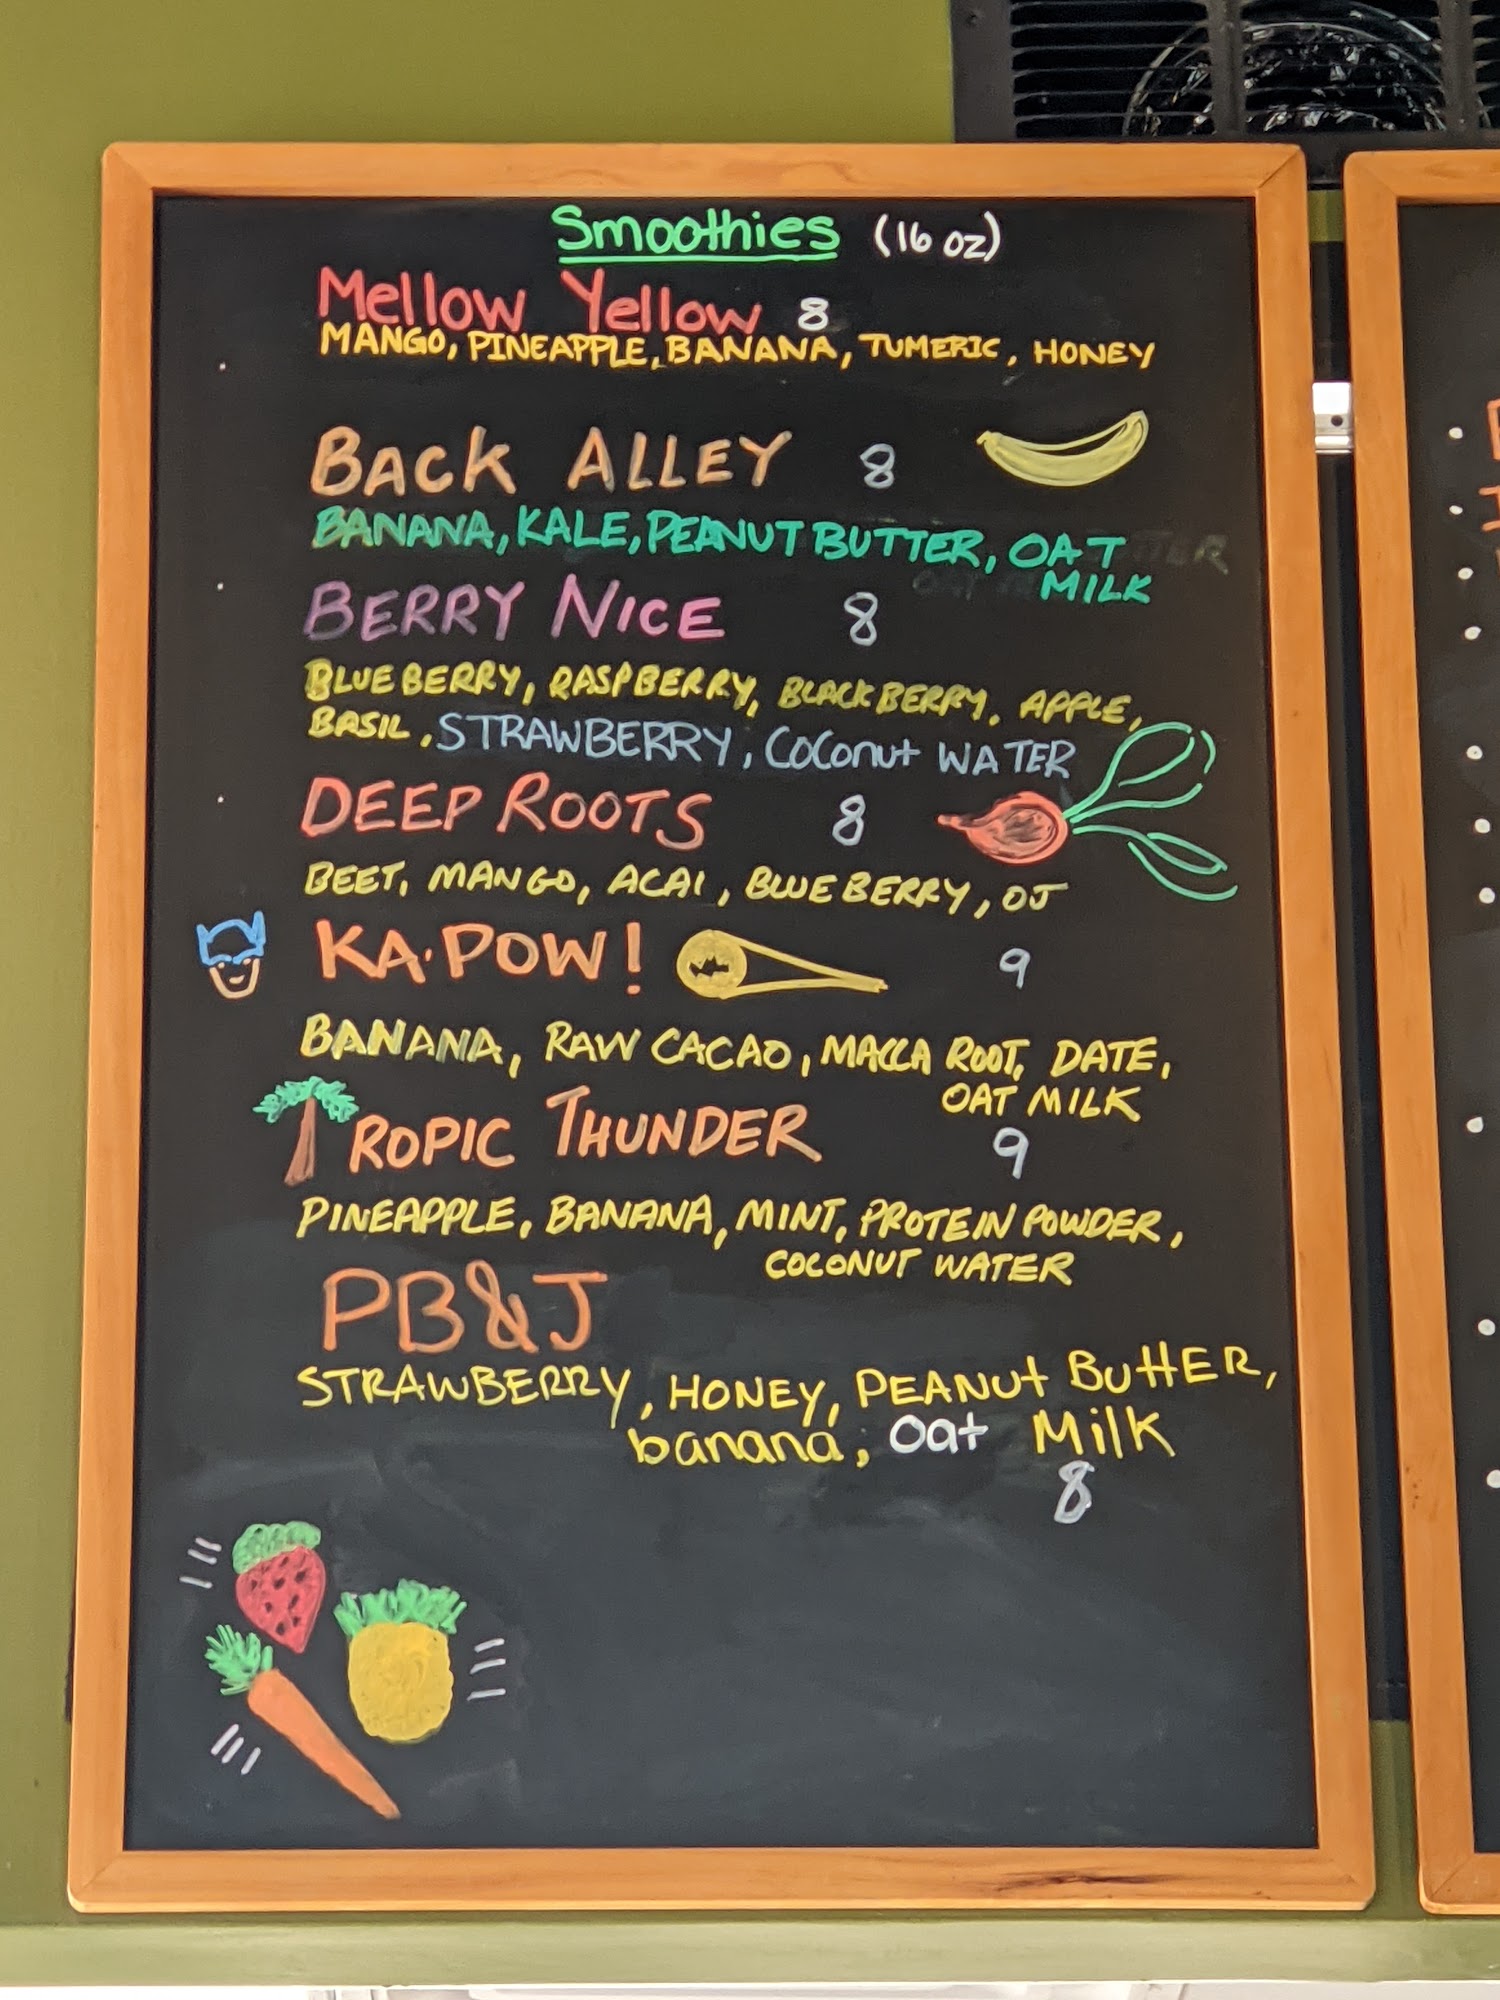 Smoothies (16 oz)
Mellow Yellow 8
MANGO, PINEAPPLE, BANANA, TUMERIC, HONEY
BACK ALLEY 8
BANANA, KALE, PEANUT BUTTER, OAT
MILK
BERRY NICE 8
BLUEBERRY, RASPBERRY, BLACKBERRY, APPLE,
BASIL, STRAWBERRY, COCONUT WATER
DEEP ROOTS 8
BEET, MANGO, ACAI, BLUEBERRY, OJ
KA·POW! 9
BANANA, RAW CACAO, MACCA ROOT, DATE,
OAT MILK
TROPIC THUNDER 9
PINEAPPLE, BANANA, MINT, PROTEIN POWDER,
COCONUT WATER
PB&J
STRAWBERRY, HONEY, PEANUT BUTTER,
banana, Oat Milk
8